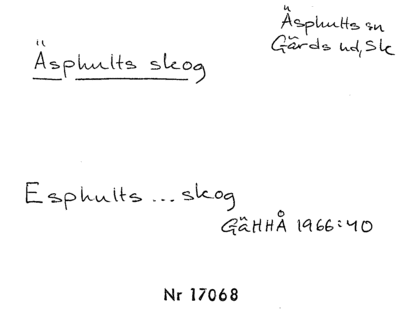 Äsphults skog
Äsphults sn
Gärds hd, Sk
Esphults ... skog
GäHHÅ 1966:40
Nr 17068